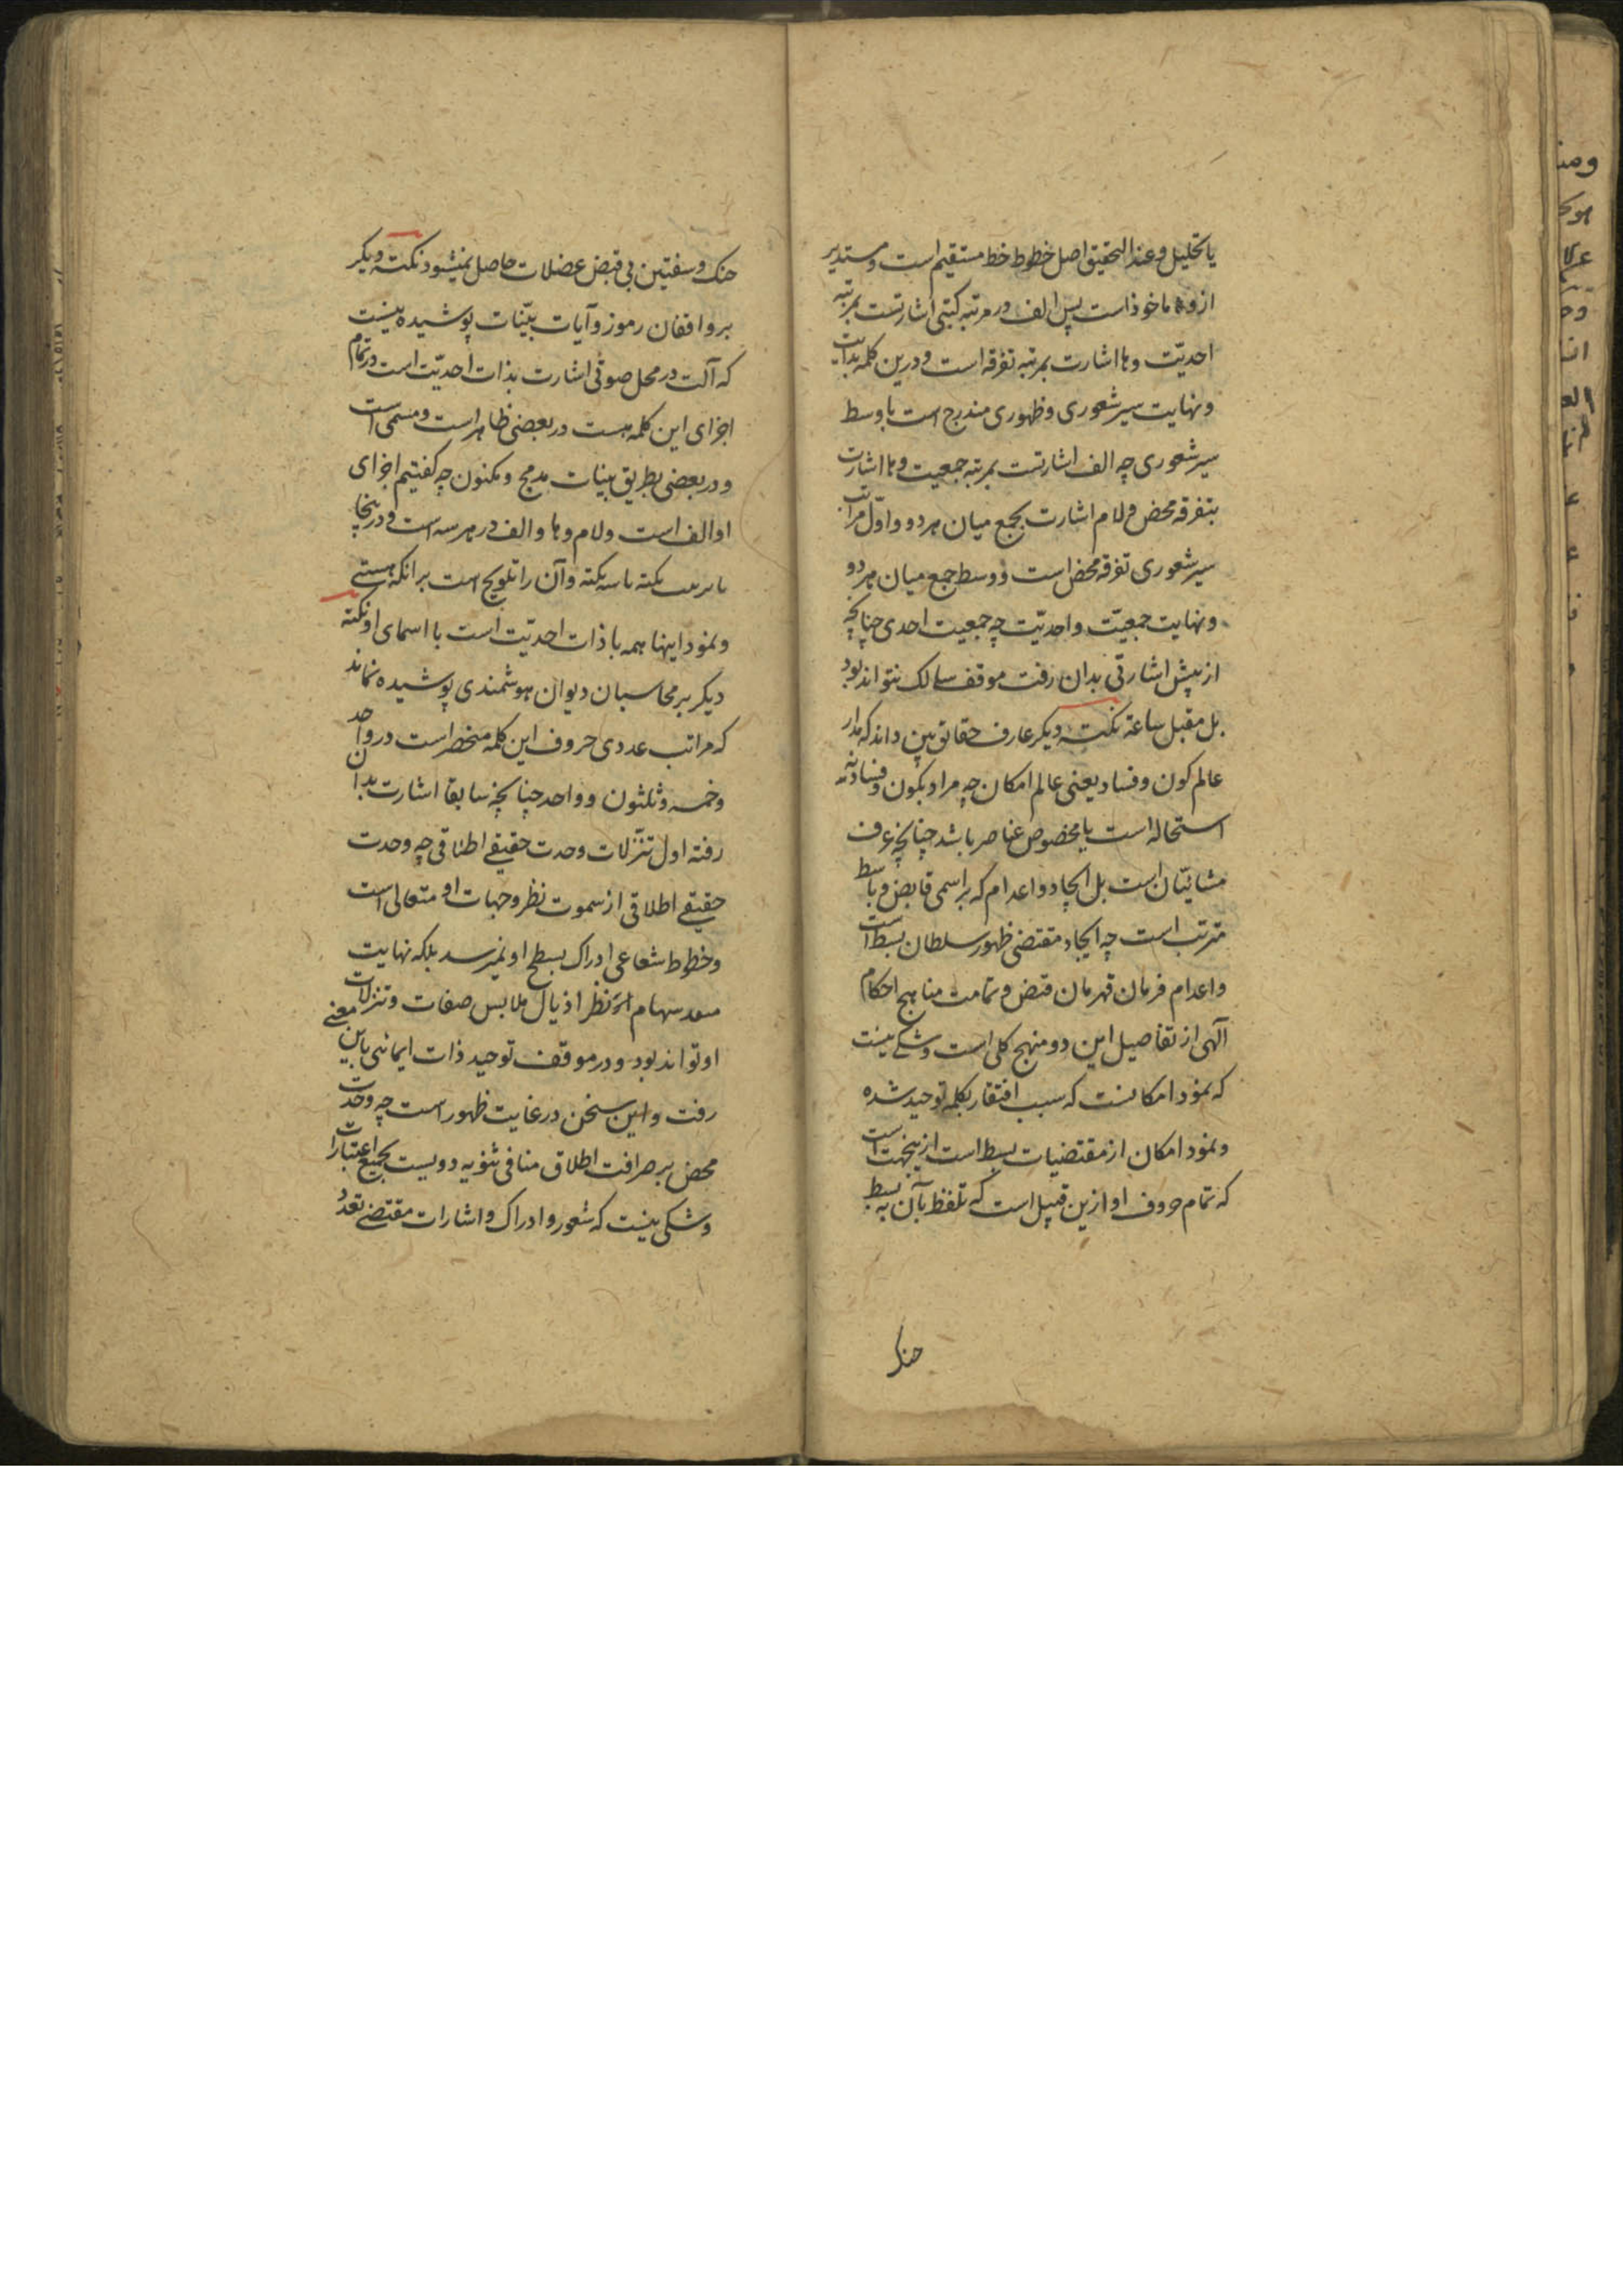 یا تحلیل و عند التحقیق اصل خطوط خط مستقیم است و مستدیر
ازو ماخوذ است پس الف در مرتبه کتبی اشارتست بمرتبه
احدیّت و ها اشارت بمرتبه تفرقه است و درین کلمه بدایت
و نهایت سیر شعوری و ظهوری مندرج است با وسط
سیر شعوری چه الف اشارتست بمرتبه جمعیت و ها اشارت
بتفرقه محض و لام اشارت بجمع میان هر دو و اوّل مراتب
سیر شعوری تفرقه محض است و وسط جمع میان هر دو
و نهایت جمعیّت واحدیّت چه جمعیت احدی چنانچه
از پیش اشارتی بدان رفت موقف سالک نتواند بود
بل مقیل ساعة نکته دیکر عارف حقائق بین داند که مدار
عالم کون و فساد یعنی عالم امکان چه مراد بکون و فساد نه
استحاله است یا مخصوص عناصر باشد چنانچه عرف
مشائیّان است بل ایجاد و اعدام که بر اسمی قابض و باسط
مترتب است چه ایجاد مقتضی ظهور سلطان بسط است
و اعدام فرمان قهرمان قبض و تمامت مناهج احکام
آلهی از تفاصیل این دو منهج کلی است و شکی نیست
که نمود امکانست که سبب افتقار بکلمه توحید شده
و نمود امکان از مقتضیات بسط است ازینجهت است
که تمام حروف او ازین قبیل است که تلفظ بآن به بسط
حنک
حنک و شفتین بی قبض عضلات حاصل نمیشود نکته دیکر
بر واقفان رموز و آیات بیّنات پوشیده نیست
که آلت در محل صوتی اشارت بذات احدیّت است در تمام
اجزای این کلمه هست در بعضی ظاهر است و مسمی است
و در بعضی بطریق بینات مدمج و مکنون چه کفتیم اجزای
او الف است و لام و ها و الف در هر سه است و درینجا
نکته و آن را تلویح است بر انکه هستی
و نمود اینها همه با ذات احدیّت است با اسمای او نکته
دیکر بر محاسبان دیوان هوشمندی پوشیده نماند
که مراتب عددی حروف این کلمه منحصر است در واحد
و خمسه و ثلثون و واحد چنانچه سابقا اشارت بدان
رفته اول تنزّلات وحدت حقیقی اطلاقی چه وحدت
حقیقی اطلاقی از سموت نظر و جهات او متعالی است
و خطوط شعاعی ادراک بسطح او نمیرسد بلکه نهایت
سهام نظر اذیال ملابس صفات و تنزلات
او تواند بود و در موقف توحید ذات ایمائی باین معنی
رفت و این سخن در غایت ظهور است چه وحدت
محض بر صرافت اطلاق منافی ثنویه دوییست بجمیع اعتبارات
و شکی نیست که شعور و ادراک و اشارات مقتضی تعدد